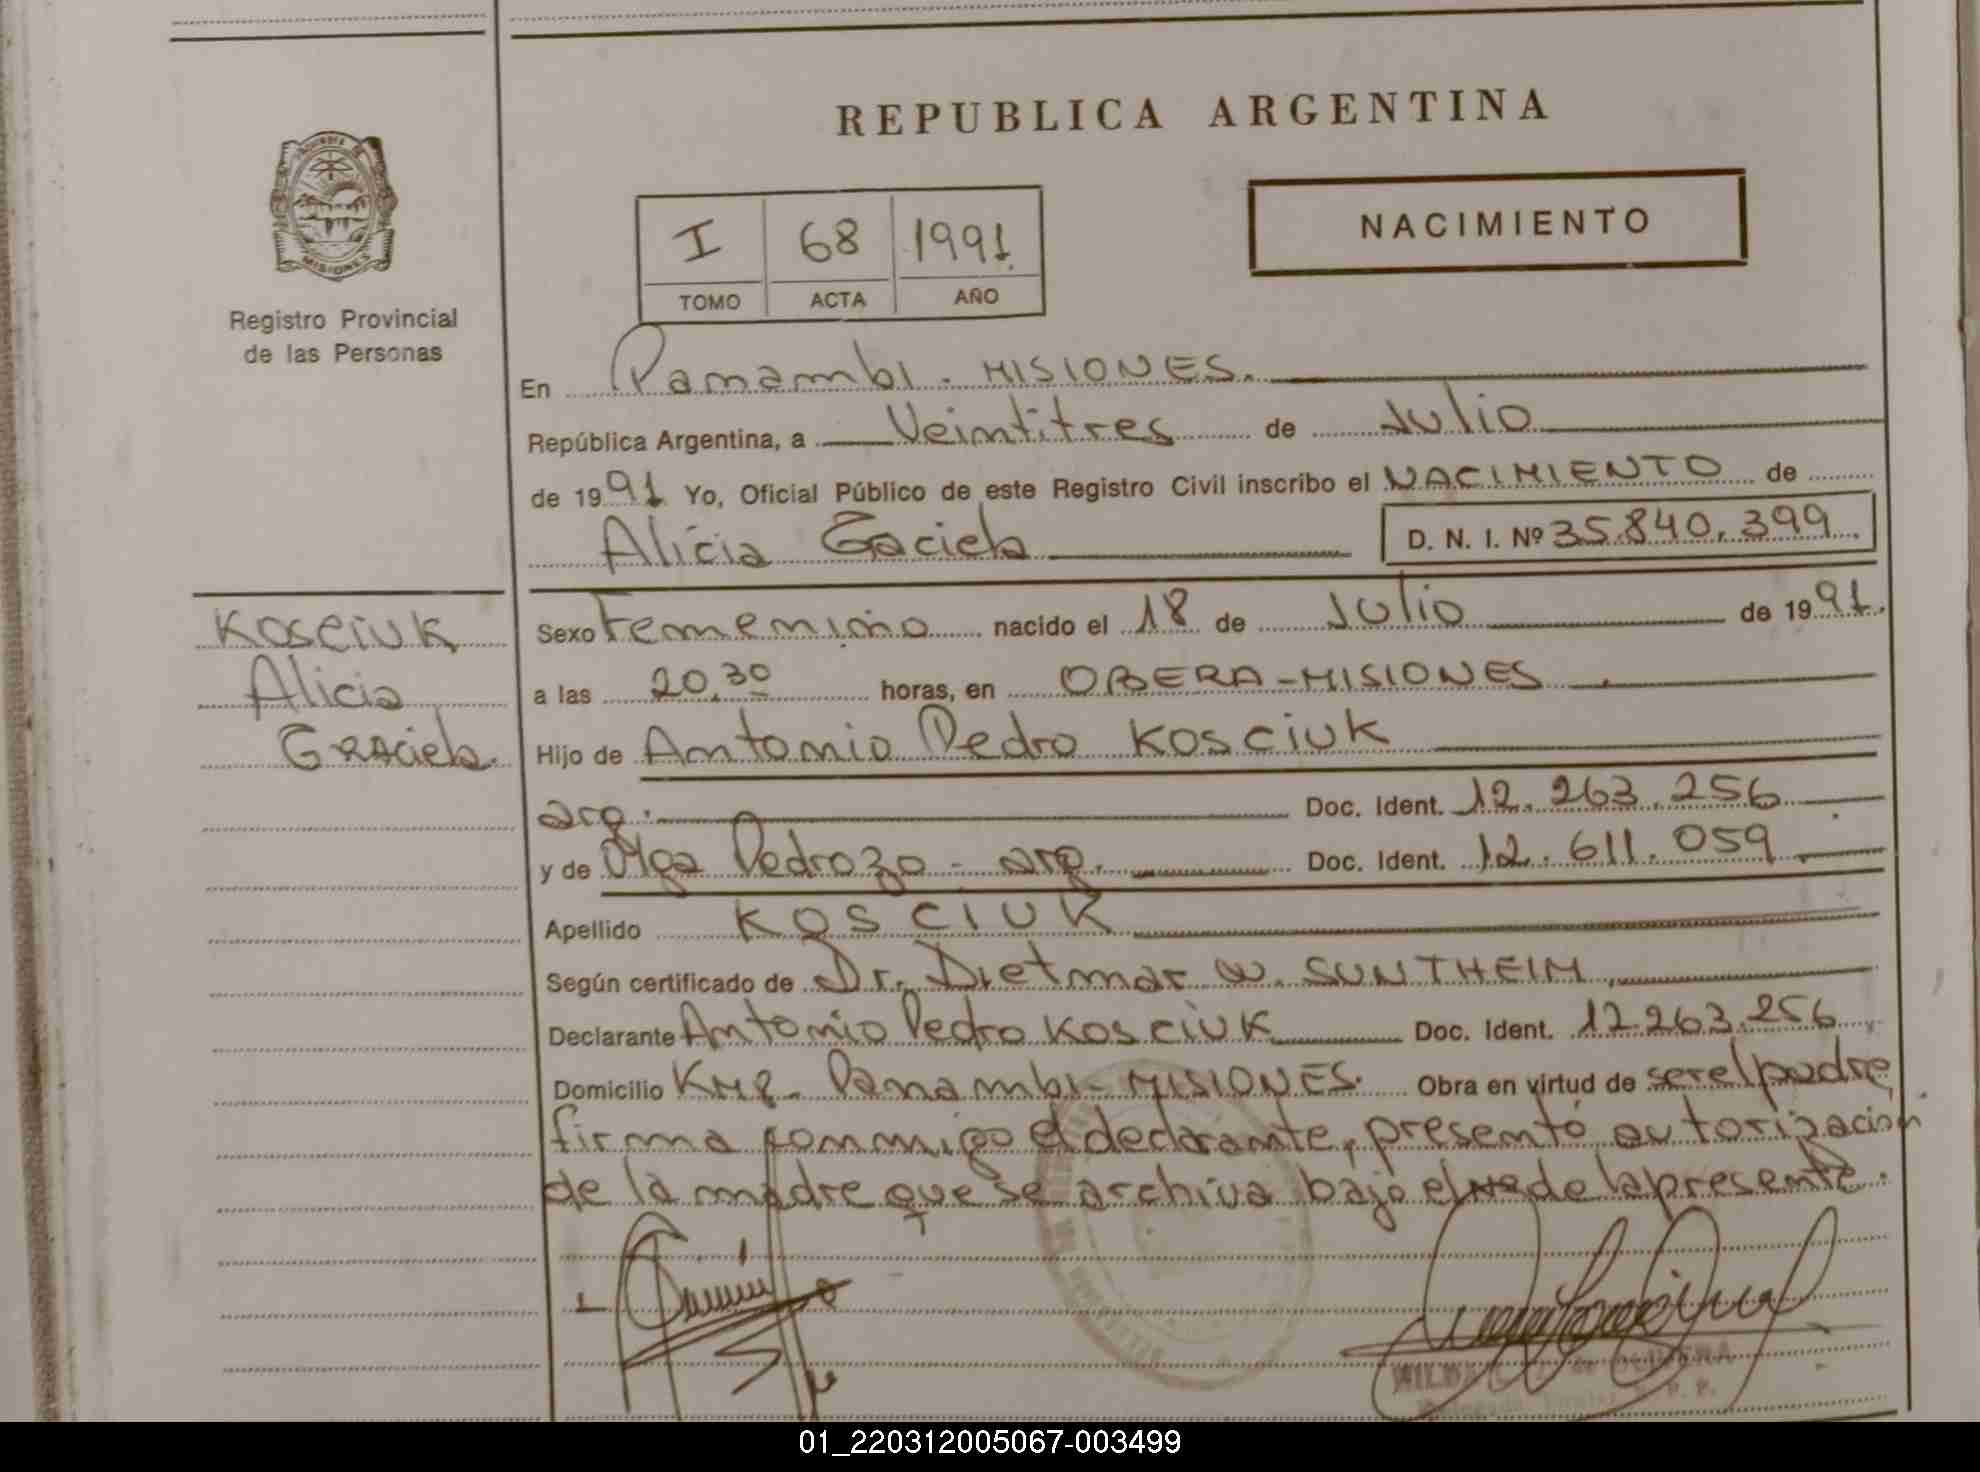 REPUBLICA ARGENTINA
PROVINCIA DE
MISIONES
Registro Provincial
de las Personas
I 68 1991
TOMO ACTA AÑO
NACIMIENTO
En Panambi - MISIONES.
República Argentina, a Veintitres de Julio
de 1991 Yo, Oficial Público de este Registro Civil inscribo el NACIMIENTO de
Alicia Graciela D. N. I. Nº 35.840.399
Kosciuk
Alicia
GRAciela.
Sexo Femenino nacido el 18 de Julio de 1991.
a las 20.30 horas, en OBERA-MISIONES
Hijo de Antonio Pedro Kosciuk
arg. Doc. Ident. 12.263.256
y de Olga Pedrozo - arg. Doc. Ident. 12.611.059
Apellido KOSCIUK
Según certificado de Dr. Dietmar W. SUNTHEIM
Declarante Antonio Pedro Kosciuk Doc. Ident. 12.263.256
Domicilio Panambi-MISIONES. Obra en virtud de ser el padre
firma conmigo el declarante, presentó autorizacion
de la madre que se archiva bajo el de la presente.
01_220312005067-003499